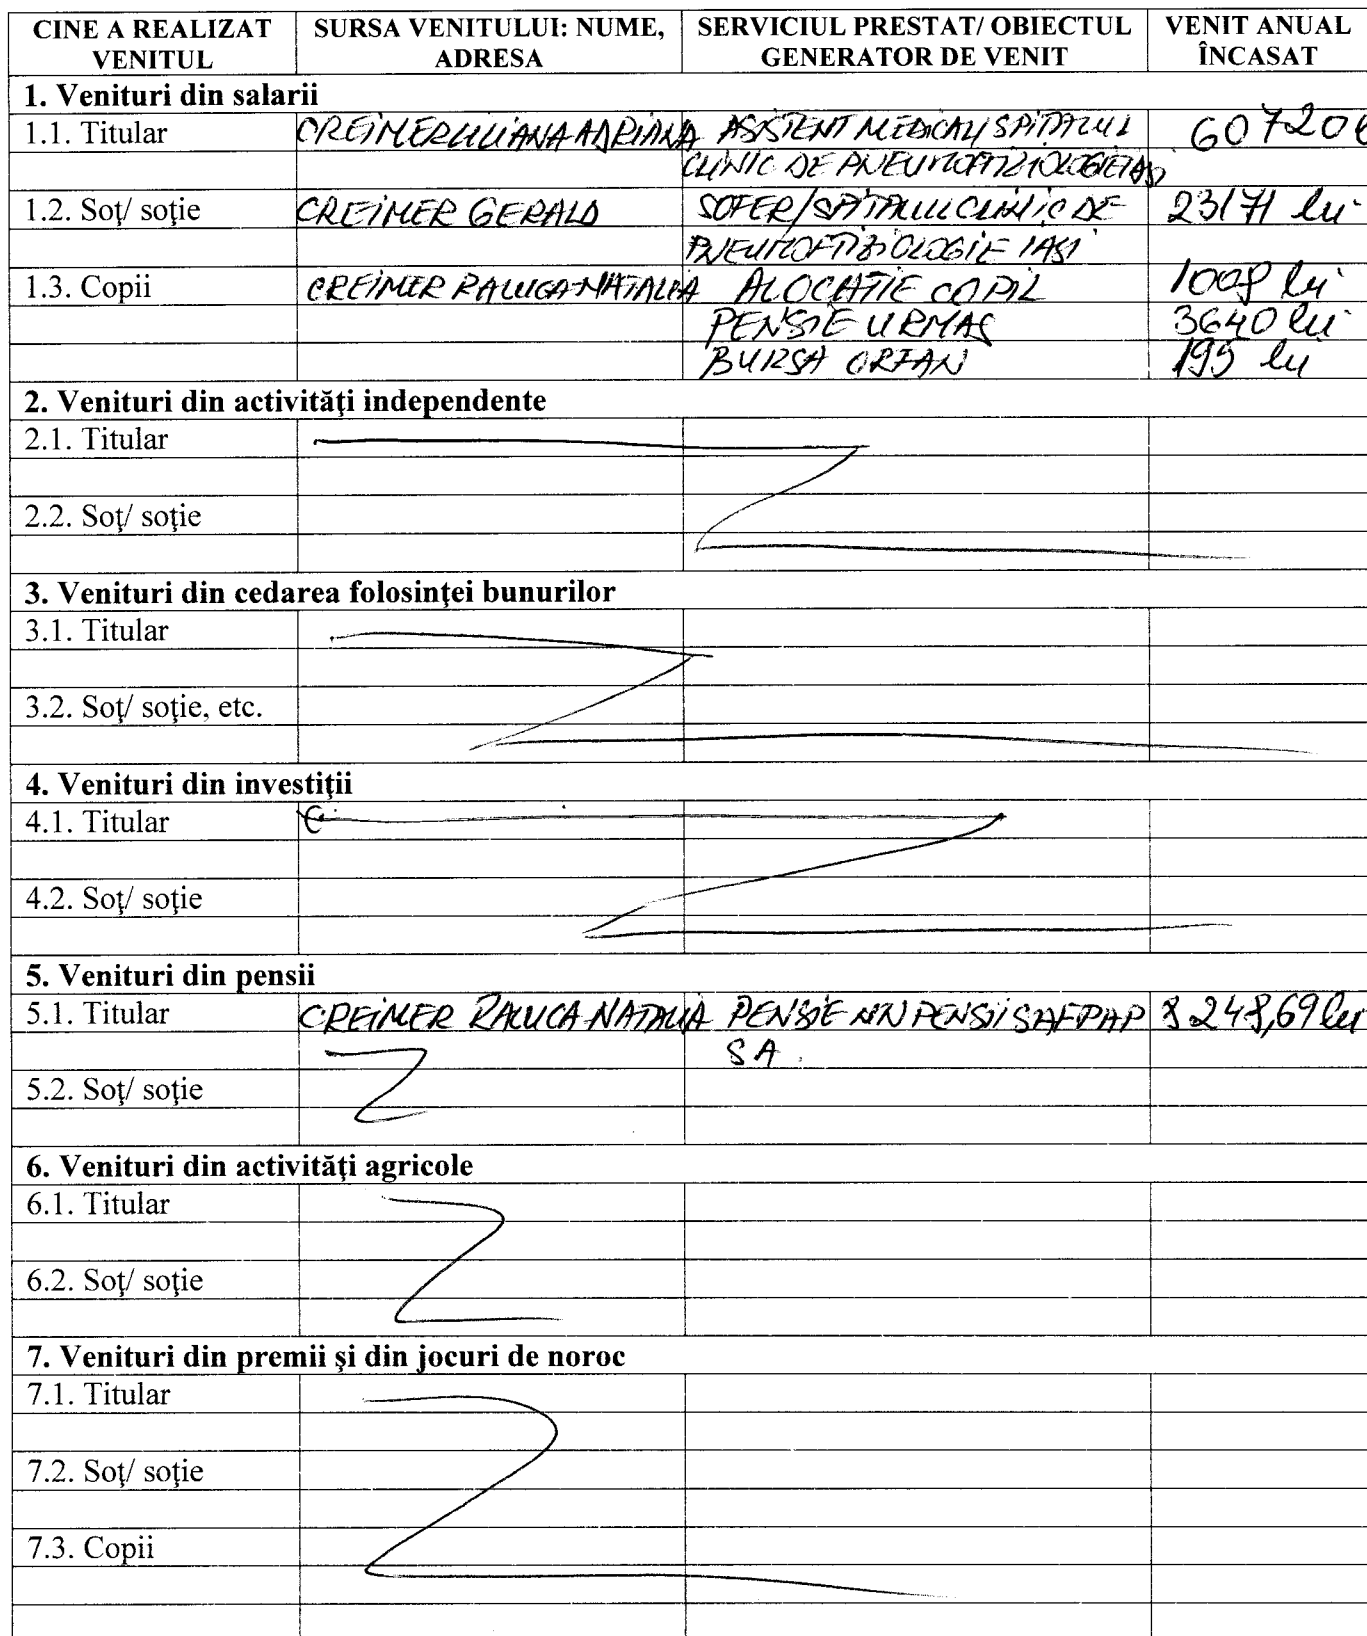 CINE A REALIZAT VENITUL | SURSA VENITULUI: NUME, ADRESA | SERVICIUL PRESTAT/ OBIECTUL GENERATOR DE VENIT | VENIT ANUAL ÎNCASAT
1. Venituri din salarii
1.1. Titular CREIMER IULIANA ADRIANA ASISTENT MEDICAL/SPITALUL 60720
CLINIC DE PNEUMOFTIZIOLOGIE IASI
1.2. Soţ/ soţie CREIMER GERALD SOFER/SPITALUL CLINIC DE 23171 lei
PNEUMOFTIZIOLOGIE IASI
1.3. Copii CREIMER RALUCA-NATALIA ALOCATIE COPIL 1008 lei
PENSIE URMAS 3640 lei
BURSA ORFAN 195 lei
2. Venituri din activităţi independente
2.1. Titular
2.2. Soţ/ soţie
3. Venituri din cedarea folosinţei bunurilor
3.1. Titular
3.2. Soţ/ soţie, etc.
4. Venituri din investiţii
4.1. Titular
4.2. Soţ/ soţie
5. Venituri din pensii
5.1. Titular CREIMER RALUCA NATALIA PENSIE NN PENSII SAFPAP 8248,69 lei
SA
5.2. Soţ/ soţie
6. Venituri din activităţi agricole
6.1. Titular
6.2. Soţ/ soţie
7. Venituri din premii şi din jocuri de noroc
7.1. Titular
7.2. Soţ/ soţie
7.3. Copii